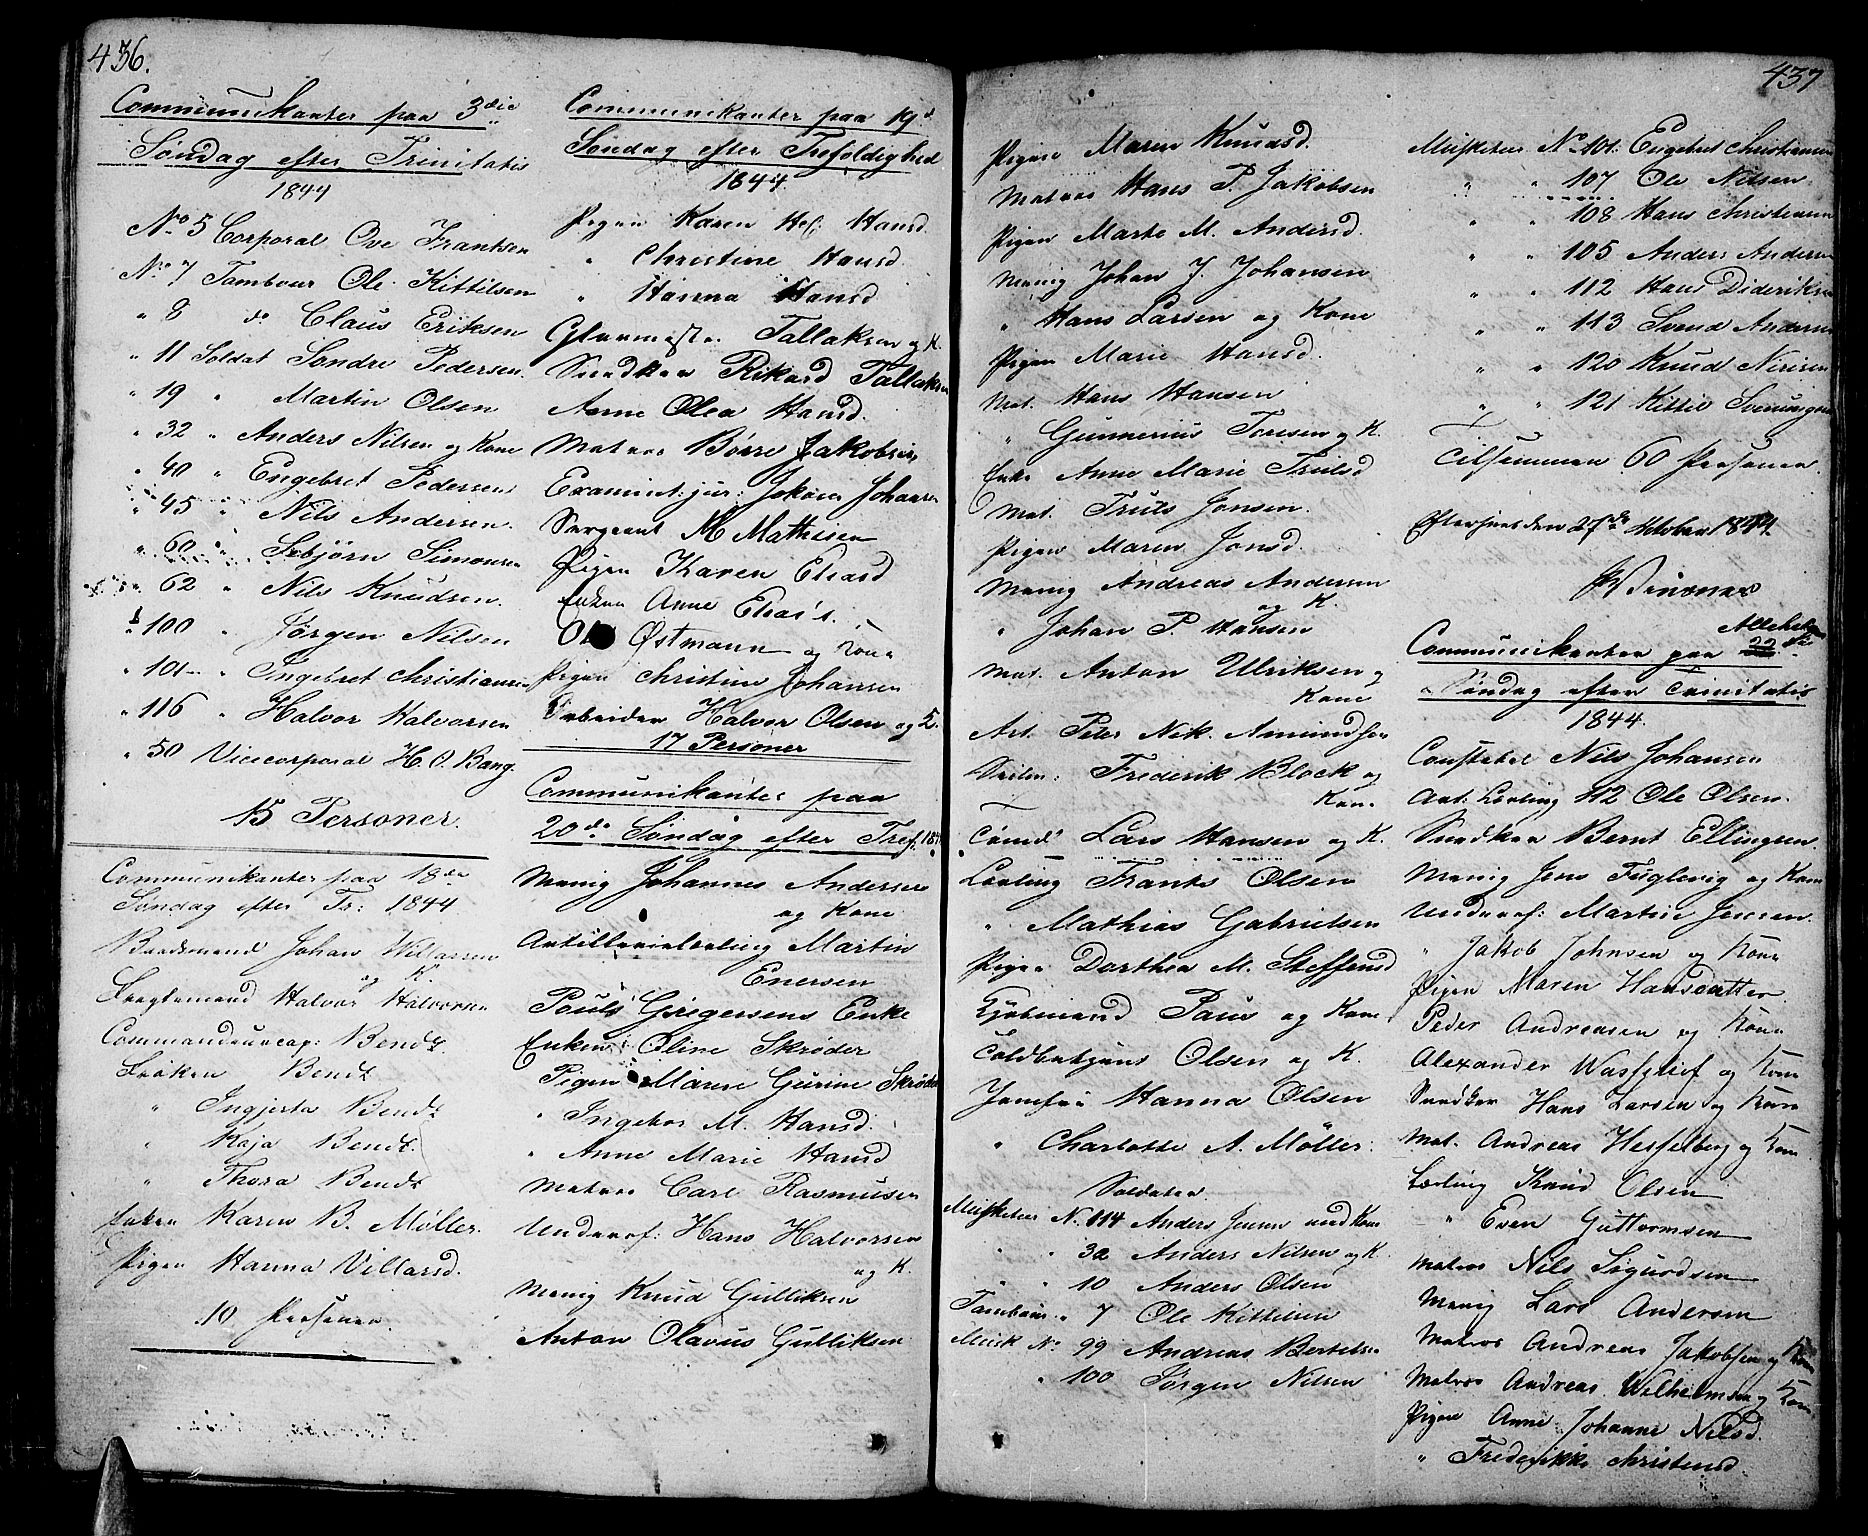 436.
Communikanter paa 3die
Søndag efter Trinitatis
1844
No 5 Corporal Ove Frantsen
No 7 Tambour Ole Kittilsen
" 8 do Claus Eriksen
" 11 Soldat Søndre Pedersen.
" 19 " Martin Olsen
" 32 " Anders Nilsen og Kone
" 40 " Engebret Pedersen
" 45 " Nils Andersen.
" 60 " Simonsen
" 62 " Nils Knudsen.
" 100 " Jørgen Nilsen
" 101 " Ingebret Christiansen
" 116 " Halvor Halvorsen
" 50 Vicecorporal H. O. Bang.
15 Personer.
Communikanter paa 18de
Søndag efter Tr: 1844
Baadsmand Johan Willarsen
og K.
Halvor Halvorsen
Commandeurcap: Bendz.
Frøken Bendz
" Ingjerta Bendz
" Kaja Bendz.
" Thora Bendz
Enken Karen B. Møller.
Pigen Hanna Villarsd.
10 Personer.
Communikanter paa 19d
Søndag efter Trefoldighed
1844
Pigen Karen Hel: Hansd.
" Christine Hansd.
" Hanna Hansd
Glarmester Tallaksen og K.
Snedker Rikard Tallaksen
Anne Olea Hansd.
Matros Børre Jakobsen
Examinat: jur: Johansen
Sergeant M Mathisen
Pigen Karen Eliasd
Enken Anne Elias's.
Ole Østmann og Kone
Pigen Christine Johansen
Arbeider Halvor Olsen og K.
17 Personer
Communikanter paa
20de Søndag efter Tref. 1844
Menig Johannes Andersen
og Kone
Artillerielærling Martin
Enersen
Pouls Gregersens Enke
Enken Oline Skrøder
Pigen Maren Gurine Skrøder
" Ingebor M. Hansd.
" Anne Marie Hansd
Matros Carl Rasmusen
Underof: Hans Halvorsen
og K.
Menig Knud Gulliksen
Anton Olavus Gulliksen
437
Pigen Maren Knudsd.
Matros Hans P. Jakobsen
Pigen Marte M. Andersd.
Menig Johan J. Johansen
" Hans Larsen og Kone
Pigen Marie Hansd.
Mat. Hans Hansen
" Gunnerius Toresen og K.
Enke Anne Marie Trulsd
Mat. Truls Jonsen.
Pigen Maren Jonsd.
Menig Andreas Andersen
og K.
" Johan P. Hansen
Mat. Anton Ulriksen og
Kone
Art. Peter Nik. Amundsen
Frederik Block og
Kone
Tømd' Lars Hansen og K.
Lærling Frants Olsen
" Mathias Gabrielsen
Pigen Dorthea M. Steffensd
Kjøbmand Paus og Kone
Toldbetjent Olsen og K.
Jomfru Hanna Olsen
" Charlotte A. Møller.
Soldater
Musketeer No. 114 Anders Jensen und Kone
" " 32 Anders Nilsen og K.
" " 10 Anders Olsen
Tambour " 7 Ole Kittelsen
Musk No. 99 Andreas Bertelsen
" 100 Jørgen Nilsen
Musketeer No 101: Engebret Christiansen
" " 107 Ole Nilsen
" " 108 Hans Christensen
" " 105 Anders Andersen
" " 112 Hans Dideriksen
" " 113 Svend Andersen
" " 120 Knud
" " 121 Kittil Svenungsen
Tilsammen 60 Personer.
Efterseet den 27de October 1844.
Allehelgen
Communikanter paa 22de
Søndag efter Trinitatis
1844.
Constabel Nils Johansen
Art: Lærling 42 Ole Olsen.
Snedker Bernt Ellingsen.
Menig Jens Fuglevig og Kone
Underof: Martin Jensen.
" Jakob Johnsen og Kone
Pigen Maren Hansdatter.
Peder Andreasen og Kone
Alexander og Kone
Snedker Hans Larsen og Kone
Mat. Andreas Hesselberg og Kone
Lærling Knud Olsen
" Even Guttormsen
Matros Nils Sigurdsen
Menig Lars Andersen
Matros Andreas Jakobsen og Kone
Matros Andreas Wilhelmsen og Kone
Pigen Anne Johanne Nilsd.
" Frederikke Christensd